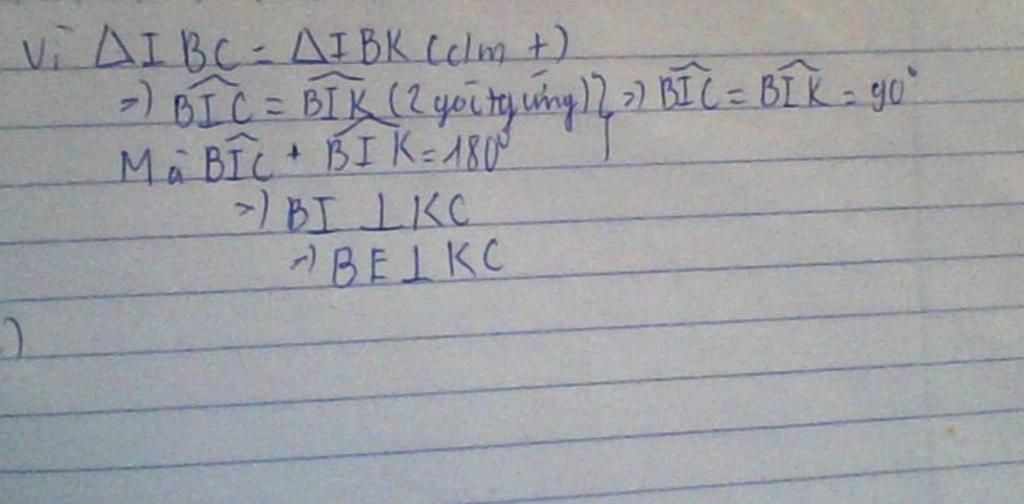 Vì ΔIBC = ΔIBK (clm t)
=) BÎC = BÎK (2 góc tg ứng)} =) BÎC = BÎK = 90°
Mà BÎC + BÎK = 180°
=) BI ⊥ KC
=) BE ⊥ KC
)